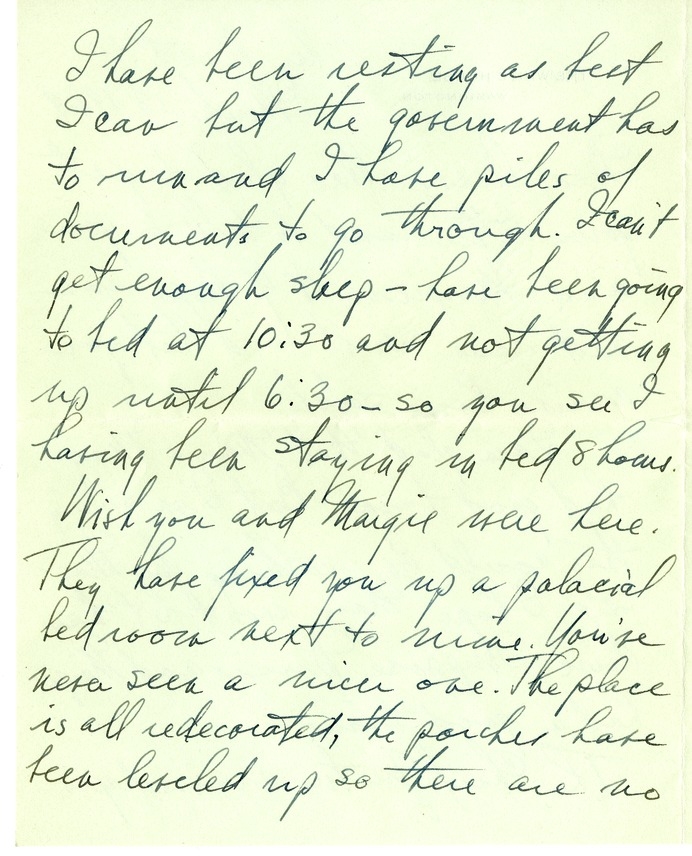 I have been resting as best
I can but the government has
to run and I have piles of
documents to go through. I can't
get enough sleep – have been going
to bed at 10:30 and not getting
up until 6:30 – so you see I
having been staying in bed 8 hours.
Wish you and Margie were here.
They have fixed you up a palacial
bedroom next to mine. You've
never seen a nicer one. The place
is all redecorated, the porches have
been leveled up so there are no